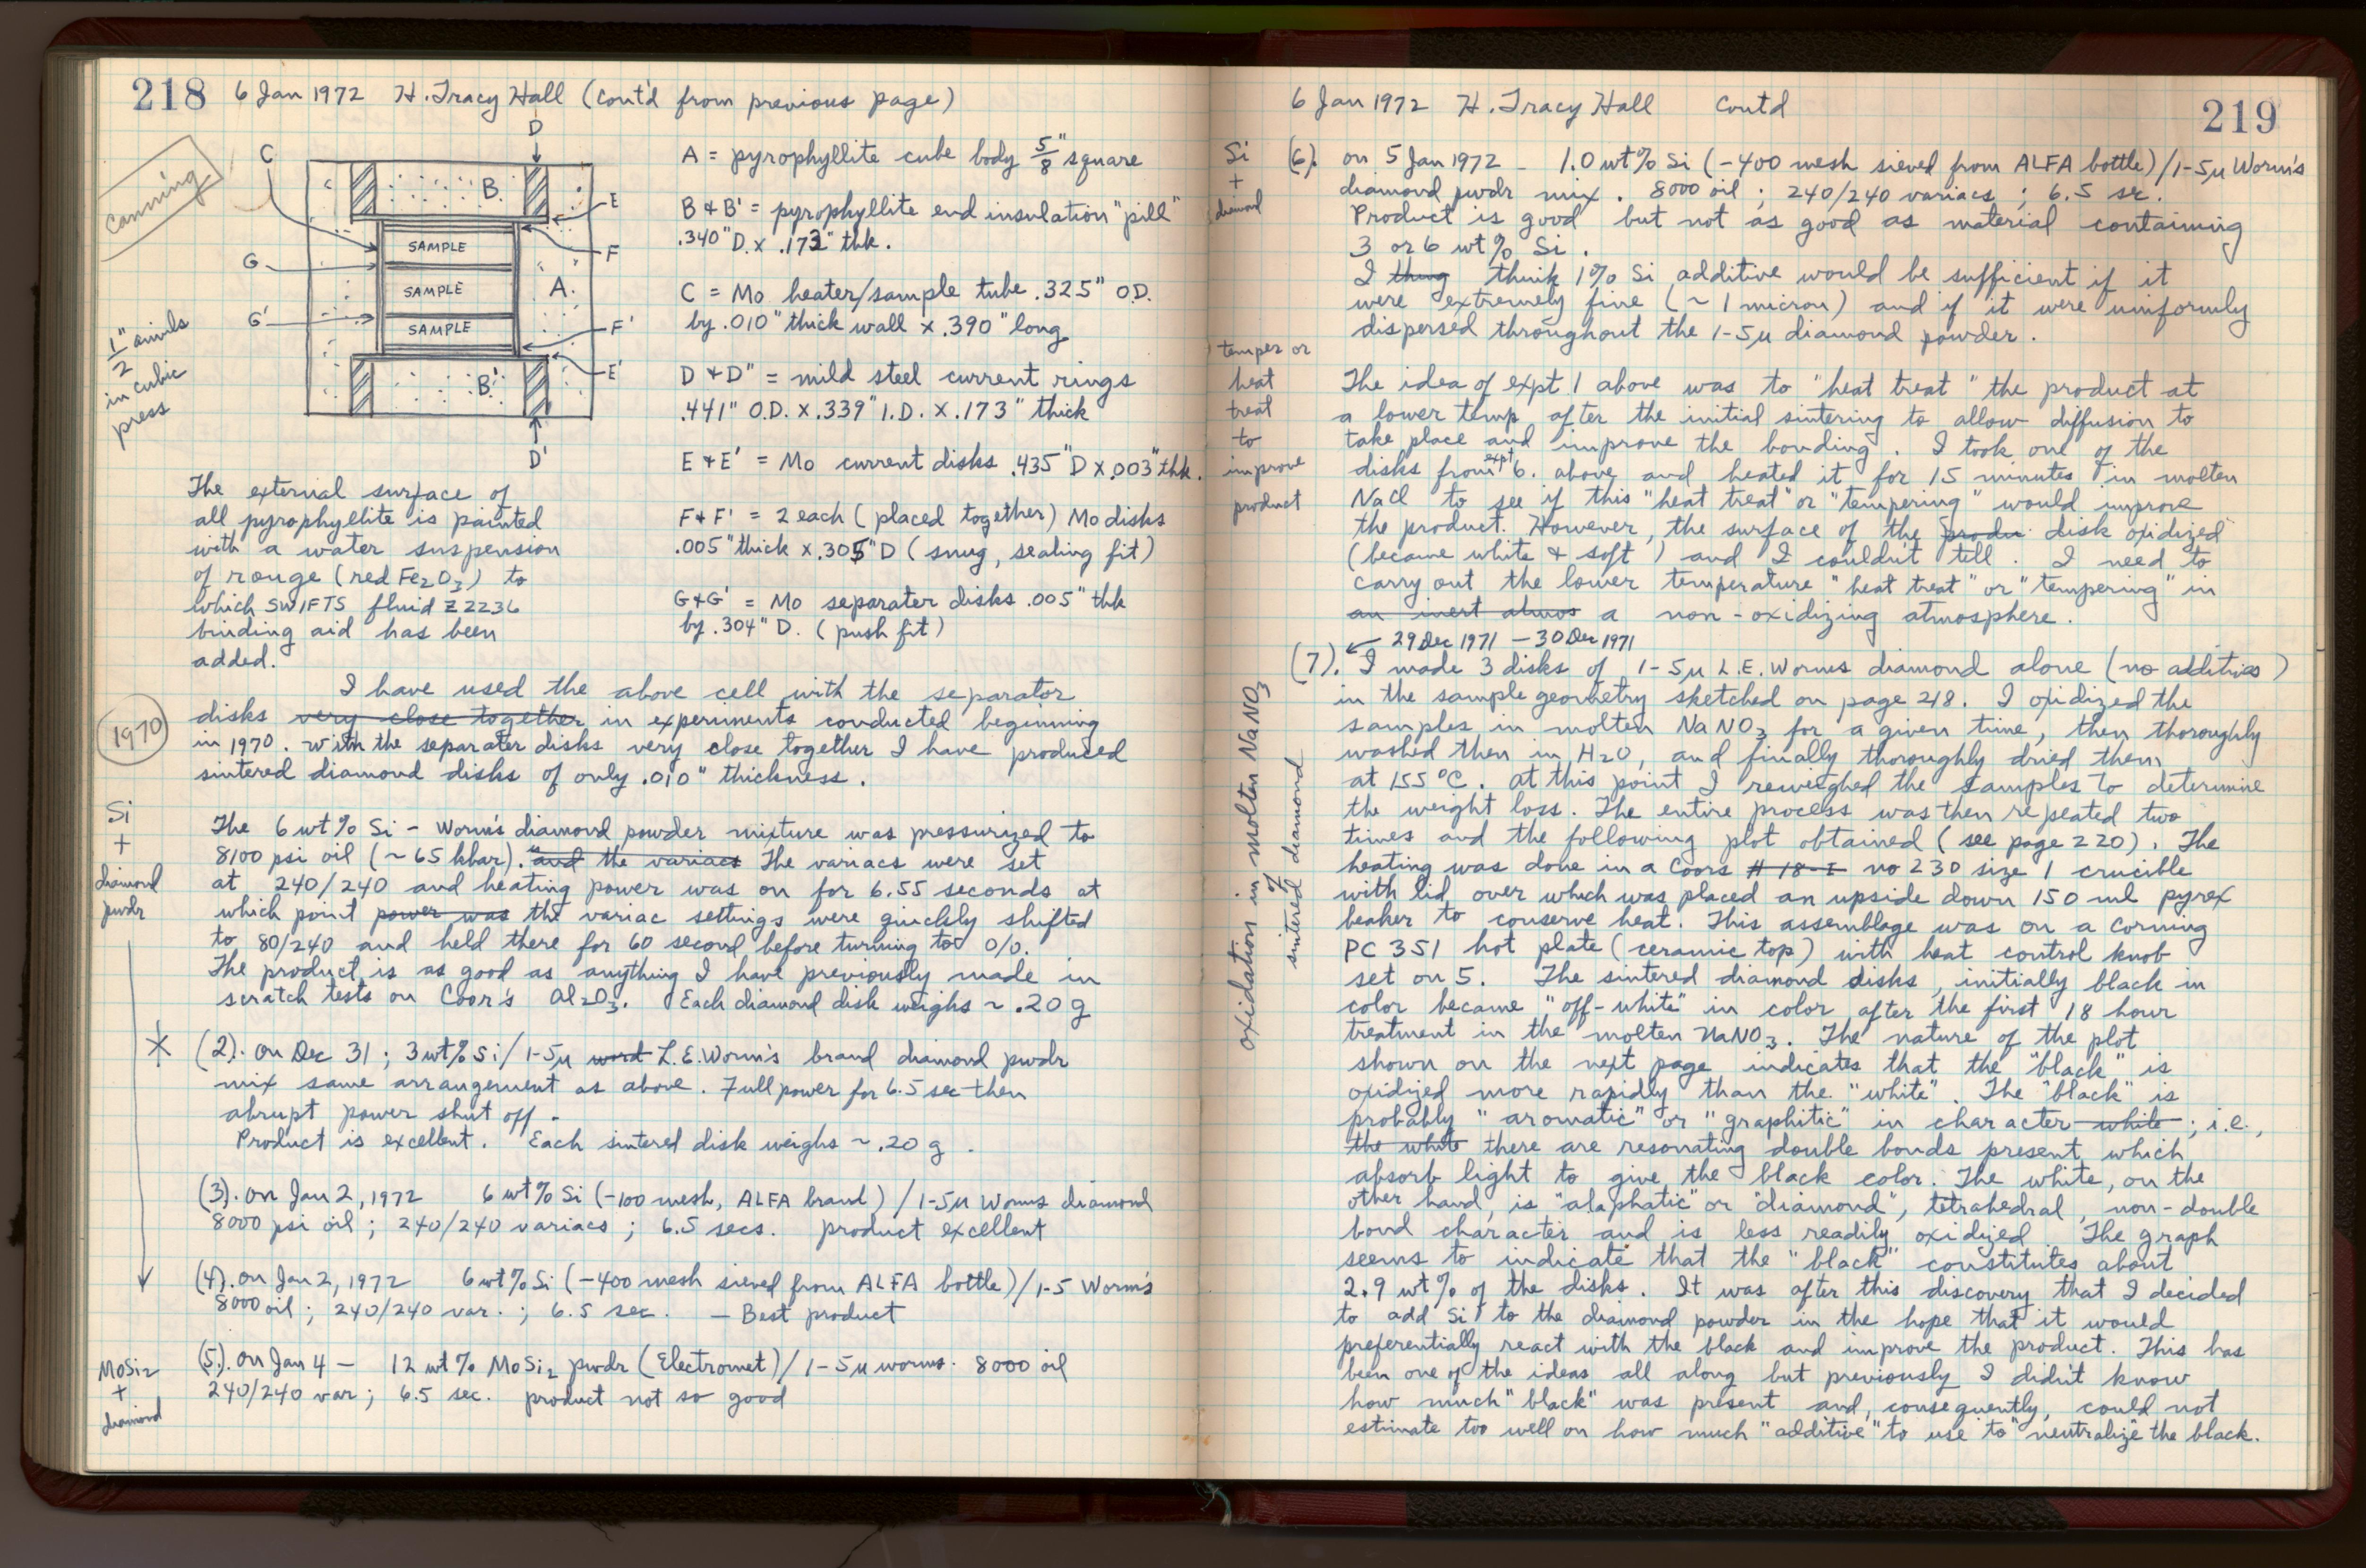 218 6 Jan 1972 H. Tracy Hall (Cont'd from previous page)
canning
D
C
B
E
SAMPLE
F
G
SAMPLE
A
G'
SAMPLE
F'
E'
B'
D'
1/2" anvils
in cubic
press
A = pyrophyllite cube body 5/8" square
B & B' = pyrophyllite end insulation "pill"
.340" D. x .173" thk.
C = Mo heater/sample tube .325" O.D.
by .010" thick wall x .390" long
D & D" = mild steel current rings
.441" O.D. x .339" I.D. x .173" thick
E & E' = Mo current disks .435" D x .003" thk.
F & F' = 2 each (placed together) Mo disks
.005" thick x .305" D (snug, sealing fit)
G & G' = Mo separater disks .005" thk
by .304" D. (push fit)
The external surface of
all pyrophyllite is painted
with a water suspension
of rouge (red Fe2O3) to
which SWIFTS fluid Z2236
binding aid has been
added.
I have used the above cell with the separator
disks very close together in experiments conducted beginning
1970
in 1970. With the separater disks very close together I have produced
sintered diamond disks of only .010" thickness.
Si
+
diamond
pwdr
The 6 wt % Si - Worm's diamond powder mixture was pressurized to
8100 psi oil (~65 kbar). and the variacs The variacs were set
at 240/240 and heating power was on for 6.55 seconds at
which point power was the variac settings were quickly shifted
to 80/240 and held there for 60 second before turning to 0/0.
The product is as good as anything I have previously made in
scratch tests on Coor's Al2O3. Each diamond disk weighs ~ .20 g
(2). On Dec 31; 3 wt % Si/1-5μ L.E. Worm's brand diamond pwdr
mix same arrangement as above. Full power for 6.5 sec then
abrupt power shut off -
Product is excellent. Each sintered disk weighs ~ .20 g.
(3). On Jan 2, 1972 6 wt % Si (-100 mesh, ALFA brand) / 1-5μ Worms diamond
8000 psi oil; 240/240 variacs; 6.5 secs. product excellent
(4). On Jan 2, 1972 6 wt % Si (-400 mesh sieved from ALFA bottle)/1-5 Worm's
8000 oil; 240/240 var.; 6.5 sec. - Best product
MoSi2
+
diamond
(5). On Jan 4 - 12 wt % MoSi2 pwdr (Electromet)/1-5μ worms. 8000 oil
240/240 var; 6.5 sec. product not so good
6 Jan 1972 H. Tracy Hall Contd 219
Si
+
diamond
(6). on 5 Jan 1972 - 1.0 wt % Si (-400 mesh sieved from ALFA bottle)/1-5μ Worm's
diamond pwdr mix. 8000 oil; 240/240 variacs; 6.5 sec.
Product is good but not as good as material containing
3 or 6 wt % Si.
I thing think 1% Si additive would be sufficient if it
were extremely fine (~1 micron) and if it were uniformly
dispersed throughout the 1-5μ diamond powder.
temper or
heat
treat
to
improve
product
The idea of expt 1 above was to "heat treat" the product at
a lower temp after the initial sintering to allow diffusion to
take place and improve the bonding. I took one of the
disks from expt 6. above and heated it for 15 minutes in molten
NaCl to see if this "heat treat" or "tempering" would improve
the product. However, the surface of the produ disk oxidized
(became white & soft) and I couldn't tell. I need to
carry out the lower temperature "heat treat" or "tempering" in
an inert atmos a non-oxidizing atmosphere.
29 Dec 1971 - 30 Dec 1971
oxidation in molten NaNO3
of
sintered diamond
(7). I made 3 disks of 1-5μ L.E. Worms diamond alone (no additives)
in the sample geometry sketched on page 218. I oxidized the
samples in molten NaNO3 for a given time, then thoroughly
washed then in H2O, and finally thoroughly dried them
at 155 °C. At this point I reweighed the samples to determine
the weight loss. The entire process was then repeated two
times and the following plot obtained (see page 220). The
heating was done in a Coors # 18-I no 230 size 1 crucible
with lid over which was placed an upside down 150 ml pyrex
beaker to conserve heat. This assemblage was on a Corning
PC 351 hot plate (ceramic top) with heat control knob
set on 5. The sintered diamond disks, initially black in
color became "off-white" in color after the first 18 hour
treatment in the molten NaNO3. The nature of the plot
shown on the next page indicates that the "black" is
oxidized more rapidly than the "white". The "black" is
probably "aromatic" or "graphitic" in character white; i.e.,
the white there are resonating double bonds present which
absorb light to give the black color. The white, on the
other hand, is "alaphatic" or "diamond", tetrahedral, non-double
bond character and is less readily oxidized. The graph
seems to indicate that the "black" constitutes about
2.9 wt % of the disks. It was after this discovery that I decided
to add Si to the diamond powder in the hope that it would
preferentially react with the black and improve the product. This has
been one of the ideas all along but previously I didn't know
how much "black" was present and, consequently, could not
estimate too well on how much "additive" to use to "neutralize" the black.